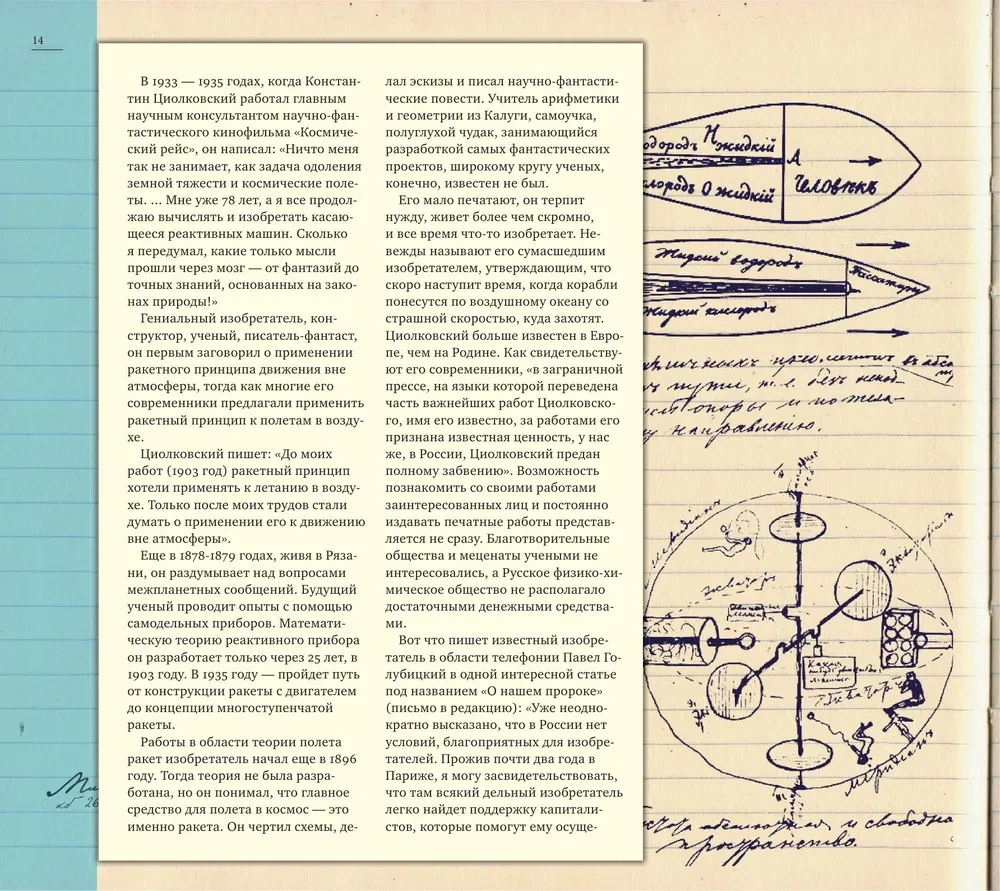 14
В 1933 — 1935 годах, когда Констан-
тин Циолковский работал главным
научным консультантом научно-фан-
тастического кинофильма «Космиче-
ский рейс», он написал: «Ничто меня
так не занимает, как задача одоления
земной тяжести и космические поле-
ты. ... Мне уже 78 лет, а я все продол-
жаю вычислять и изобретать касаю-
щееся реактивных машин. Сколько
я передумал, какие только мысли
прошли через мозг — от фантазий до
точных знаний, основанных на зако-
нах природы!»
Гениальный изобретатель, кон-
структор, ученый, писатель-фантаст,
он первым заговорил о применении
ракетного принципа движения вне
атмосферы, тогда как многие его
современники предлагали применить
ракетный принцип к полетам в возду-
хе.
Циолковский пишет: «До моих
работ (1903 год) ракетный принцип
хотели применять к летанию в возду-
хе. Только после моих трудов стали
думать о применении его к движению
вне атмосферы».
Еще в 1878-1879 годах, живя в Ряза-
ни, он раздумывает над вопросами
межпланетных сообщений. Будущий
ученый проводит опыты с помощью
самодельных приборов. Математи-
ческую теорию реактивного прибора
он разработает только через 25 лет, в
1903 году. В 1935 году — пройдет путь
от конструкции ракеты с двигателем
до концепции многоступенчатой
ракеты.
Работы в области теории полета
ракет изобретатель начал еще в 1896
году. Тогда теория не была разра-
ботана, но он понимал, что главное
средство для полета в космос — это
именно ракета. Он чертил схемы, де-
лал эскизы и писал научно-фантасти-
ческие повести. Учитель арифметики
и геометрии из Калуги, самоучка,
полуглухой чудак, занимающийся
разработкой самых фантастических
проектов, широкому кругу ученых,
конечно, известен не был.
Его мало печатают, он терпит
нужду, живет более чем скромно,
и все время что-то изобретает. Не-
вежды называют его сумасшедшим
изобретателем, утверждающим, что
скоро наступит время, когда корабли
понесутся по воздушному океану со
страшной скоростью, куда захотят.
Циолковский больше известен в Евро-
пе, чем на Родине. Как свидетельству-
ют его современники, «в заграничной
прессе, на языки которой переведена
часть важнейших работ Циолковско-
го, имя его известно, за работами его
признана известная ценность, у нас
же, в России, Циолковский предан
полному забвению». Возможность
познакомить со своими работами
заинтересованных лиц и постоянно
издавать печатные работы представ-
ляется не сразу. Благотворительные
общества и меценаты учеными не
интересовались, а Русское физико-хи-
мическое общество не располагало
достаточными денежными средства-
ми.
Вот что пишет известный изобре-
татель в области телефонии Павел Го-
лубицкий в одной интересной статье
под названием «О нашем пророке»
(письмо в редакцию): «Уже неодно-
кратно высказано, что в России нет
условий, благоприятных для изобре-
тателей. Прожив почти два года в
Париже, я могу засвидетельствовать,
что там всякий дельный изобретатель
легко найдет поддержку капитали-
стов, которые помогут ему осуще-
одородъ Н жидкій
А
Человѣкъ
слородъ О жидкій
Жидкий водородъ
Пассажиры
Жидкий кислородъ
пути, т. е. безъ
опоры и по жела-
направленію.
экваторъ
Экваторъ
меридианъ
и свободно
пространство.